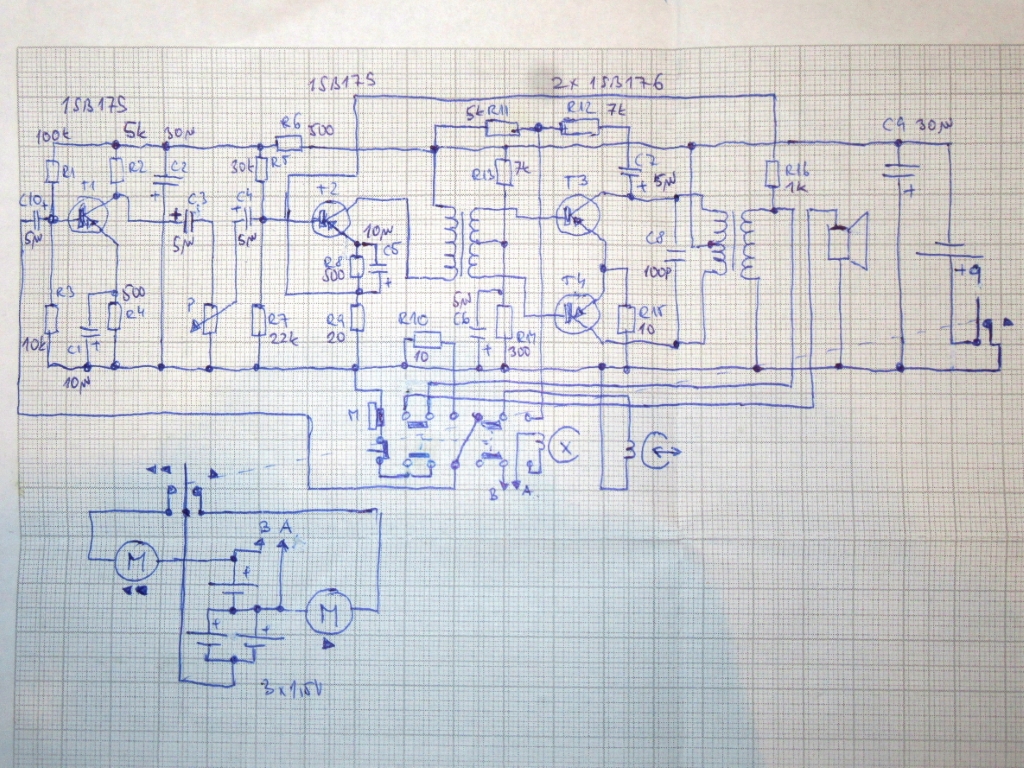 1SB175
1SB175
2x 1SB176
100k
5k
30µ
R6 500
5k R11
R12 7k
C9 30µ
R1
R2
C2
30k R5
R13 7k
C7
5µ
R16
1k
C10 +
T1
C3
C4
T2
T3
5µ
5µ
5µ
10µ
C5
R8
500
C8
100p
+9
R3
500
R4
P
R7
22k
R9
20
R10
10
5µ
C6
R14
300
T4
R15
10
10k
C1
10µ
M
B A
B A
M
M
3 x 1,5V